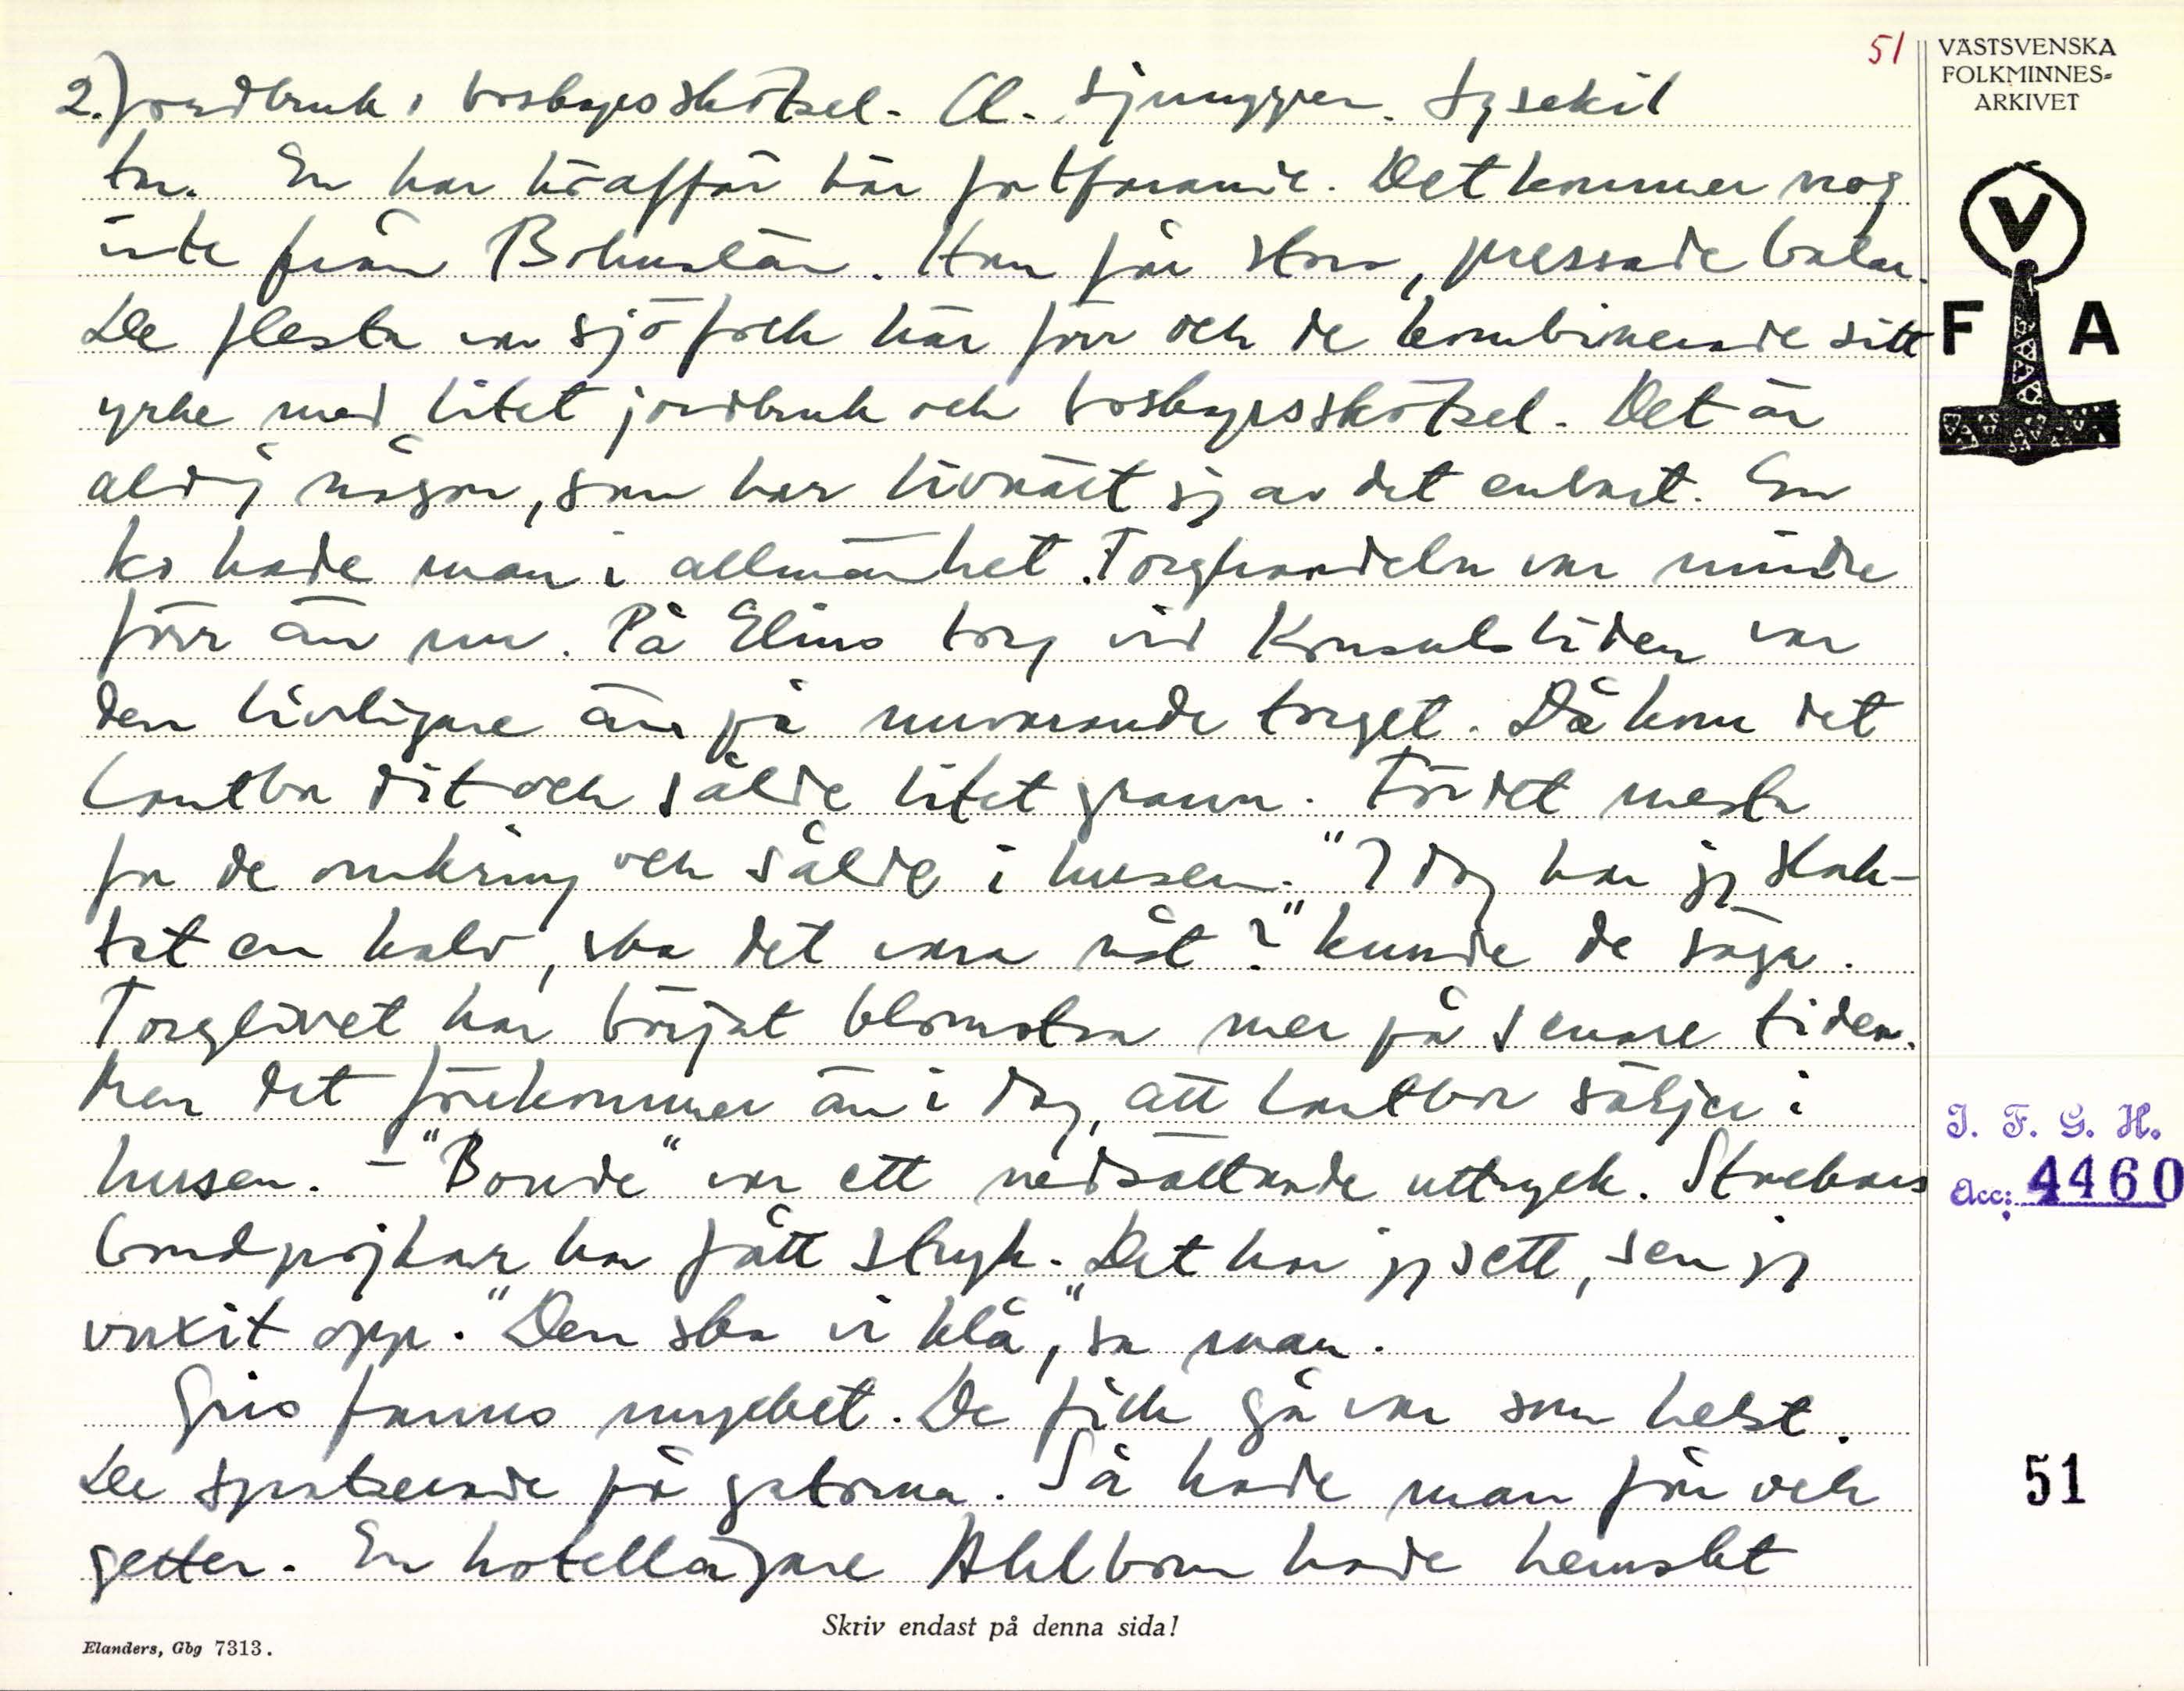 51
VÄSTSVENSKA
FOLKMINNES=
ARKIVET
2.) Jordbruk, boskapsskötsel. A. Ljunggren. Lysekil
tar. En har höaffär här fortfarande. Det kommer nog
inte från Bohuslän. Han får stora, pressade balar.
De flesta var sjöfolk här förr och de kombinerade sitt
yrke med litet jordbruk och boskapsskötsel. Det är
aldrig någon, som har livnärt sig av det enbart. En
ko hade man i allmänhet. Torghandeln var mindre
förr än nu. På Elins torg vid Konsulsliden var
den livligare än på nuvarande torget. Då kom det
lantbor dit och sålde litet grann. För det mesta
for de omkring och sålde i husen. "I dag har jag slak-
tat en kalv, ska det vara nåt?" kunde de säga.
Torglivet har börjat blomstra mer på senare tiden.
Men det förekommer än i dag, att lantbor säljer i
husen. - "Bonde" var ett nedsättande uttryck. Stackars
bondpojkar har fått stryk. Det har jag sett, sen jag
vuxit opp. "Den ska vi klå", sa man.
Gris fanns mycket. De fick gå var som helst.
De spatserade på gatorna. Så hade man får och
getter. En hotellägare Ahlbom hade hemskt
V
F A
I. F. G. H.
Acc: 4460
51
Skriv endast på denna sida!
Elanders, Gbg 7313.